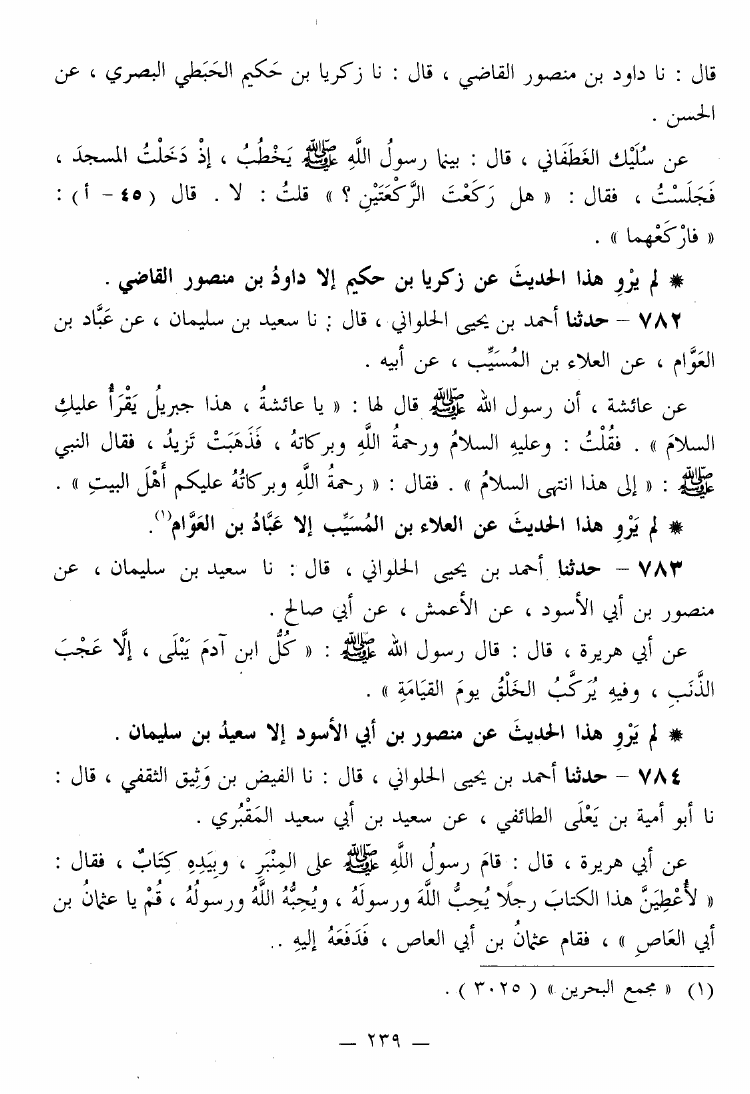 قال : نا داود بن منصور القاضي ، قال : نا زكريا بن حَكيم الحَبَطي البصري ، عن
الحسن .
عن سُلَيْك الغَطَفَاني ، قال : بينما رسولُ اللَّهِ ﷺ يَخْطُبُ ، إذْ دَخَلْتُ المسجدَ ،
فَجَلَسْتُ ، فقال : « هل رَكَعْتَ الرَّكْعَتَيْنِ ؟ » قلتُ : لا . قال (٤٥ - أ) :
« فارْكَعْهما » .
* لم يَرْوِ هذا الحديثَ عن زكريا بن حكيم إلا داودُ بن منصور القاضي .
٧٨٢ – حدثنا أحمد بن يحيى الحلواني ، قال : نا سعيد بن سليمان ، عن عَبَّاد بن
العَوَّام ، عن العلاء بن المُسَيِّب ، عن أبيه .
عن عائشة ، أن رسول الله ﷺ قال لها : « يا عائشةُ ، هذا جبريلُ يَقْرَأُ عليكِ
السلامَ » . فقُلْتُ : وعليهِ السلامُ ورحمةُ اللَّهِ وبركاتهُ ، فَذَهَبَتْ تَزيدُ ، فقال النبي
ﷺ : « إلى هذا انتهى السلامُ » . فقال : « رحمةُ اللَّهِ وبركاتُهُ عليكم أَهْلَ البيتِ » .
* لم يَرْوِ هذا الحديثَ عن العلاء بن المُسَيِّب إلا عَبَّادُ بن العَوَّام(١).
٧٨٣ – حدثنا أحمد بن يحيى الحلواني ، قال : نا سعيد بن سليمان ، عن
منصور بن أبي الأسود ، عن الأعمش ، عن أبي صالح .
عن أبي هريرة ، قال : قال رسول الله ﷺ : « كُلُّ ابن آدمَ يَبْلَى ، إلَّا عَجْبَ
الذَّنَبِ ، وفيهِ يُرَكَّبُ الخَلْقُ يومَ القيَامَةِ » .
* لم يَرْوِ هذا الحديثَ عن منصور بن أبي الأسود إلا سعيدُ بن سليمان .
٧٨٤ – حدثنا أحمد بن يحيى الحلواني ، قال : نا الفيض بن وَثِيق الثقفي ، قال :
نا أبو أمية بن يَعْلَى الطائفي ، عن سعيد بن أبي سعيد المَقْبُري .
عن أبي هريرة ، قال : قامَ رسولُ اللَّهِ ﷺ على المِنْبَرِ ، وبِيَدِهِ كِتَابٌ ، فقال :
« لأُعْطِيَنَّ هذا الكتابَ رجلًا يُحِبُّ اللَّهَ ورسولَهُ ، ويُحِبُّهُ اللَّهُ ورسولُهُ ، قُمْ يا عثمانُ بن
أبي العَاصِ » ، فقام عثمانُ بن أبي العاص ، فَدَفَعَهُ إليهِ ..
(١) « مجمع البحرين » ( ٣٠٢٥ ) .
— ٢٣٩ —